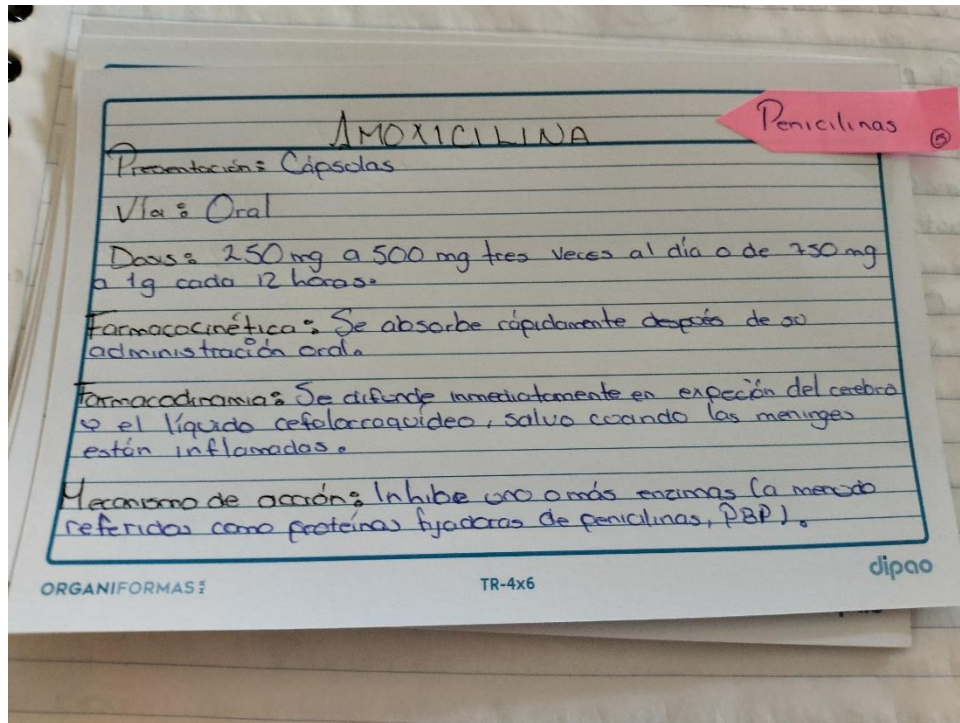 AMOXICILINA
Penicilinas
B
Presentación: Cápsulas
Vía: Oral
Dosis: 250 mg a 500 mg tres veces al día o de 750 mg
a 1g cada 12 horas.
Farmacocinética: Se absorbe rápidamente después de su
administración oral.
Farmacodinamia: Se difunde inmediatamente en expeción del cerebro
y el líquido cefalorraquídeo, salvo cuando las meninges
están inflamadas.
Mecanismo de acción: Inhibe uno o más enzimas (a menudo
referidas como proteínas fijadoras de penicilinas, PBP).
ORGANIFORMAS
TR-4x6
dipao